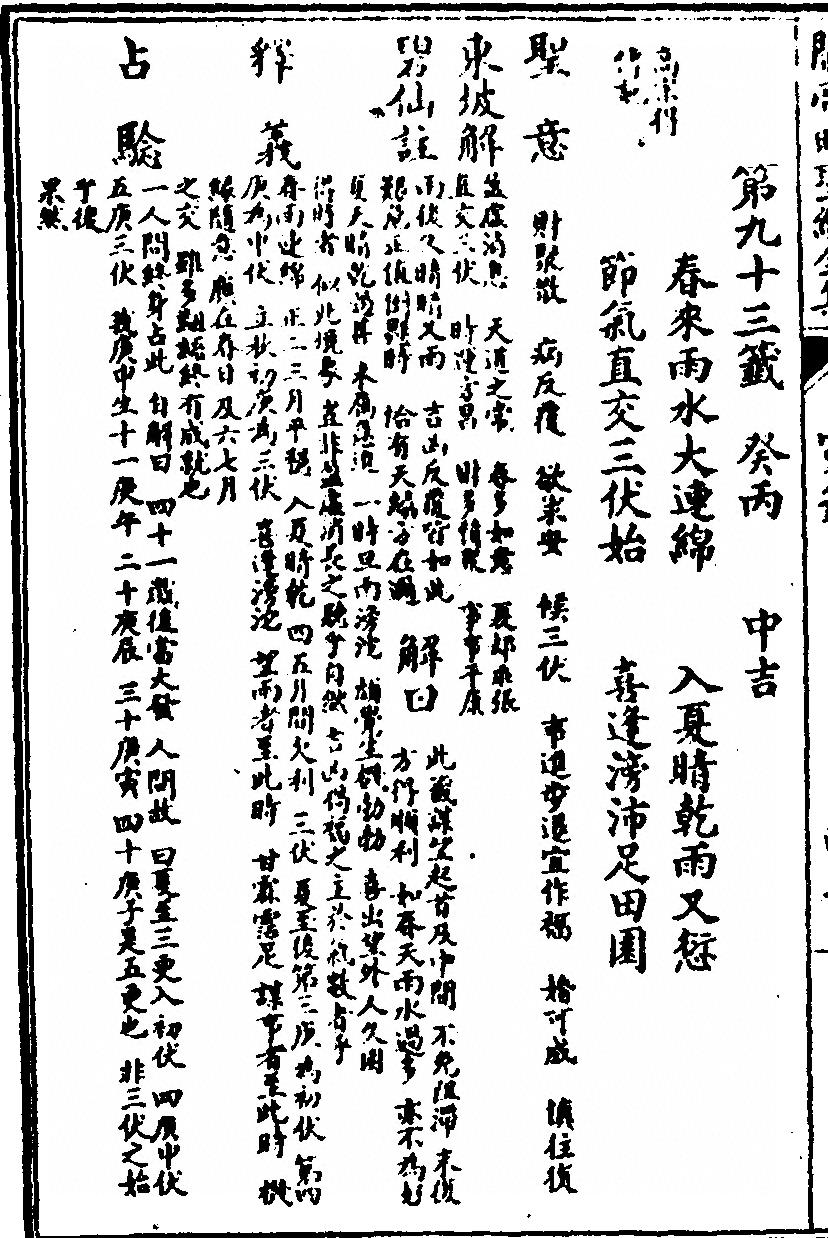 第九十三籤　癸丙　中吉
高宗得
傅説
春來雨水大連綿　入夏晴乾雨又愆
節氣直交三伏始　喜逢滂沛足田園
聖意　財聚散　病反覆　欲求安　候三伏　事進步退宜作福　婚可成　慎往復
東坡解　盈虛消息　天道之常　每多如意　憂却乖張
直交三伏　時運亨昌　財多積聚　事事平康
碧仙註　雨後久晴晴又雨　吉凶反覆皆如此
艱危正值倒懸時　恰有天緣分在邇
解曰　此籤謀望起首及中間　不免阻滯　末後
方得順利　如春天雨水過多　亦不為好
夏天晴乾　一時旦雨滂沱　頗覺生機勃勃　喜出望外　人久困
得時者　似此境象　豈非盈虛消長之驗乎　吉凶倚伏之主於氣數者乎
釋義　春雨連綿　正二三月平穩　入夏晴乾　四五月間欠利　三伏　夏至後第三庚為初伏　第四
庚為中伏　立秋初庚為三伏　喜逢滂沱　望雨者至此時　甘霖霑足　謀事者至此時　機
緣隨意　應在春日及六七月
之交　雖多齟齬終有成就也
占驗　一人問終身占此　自解曰　四十一歲後當大發　人問故　曰夏至三庚入初伏　四庚中伏
五庚三伏　我庚申生十一庚午　二十庚辰　三十庚寅　四十庚子是五庚也　非三伏之始
乎後
果然